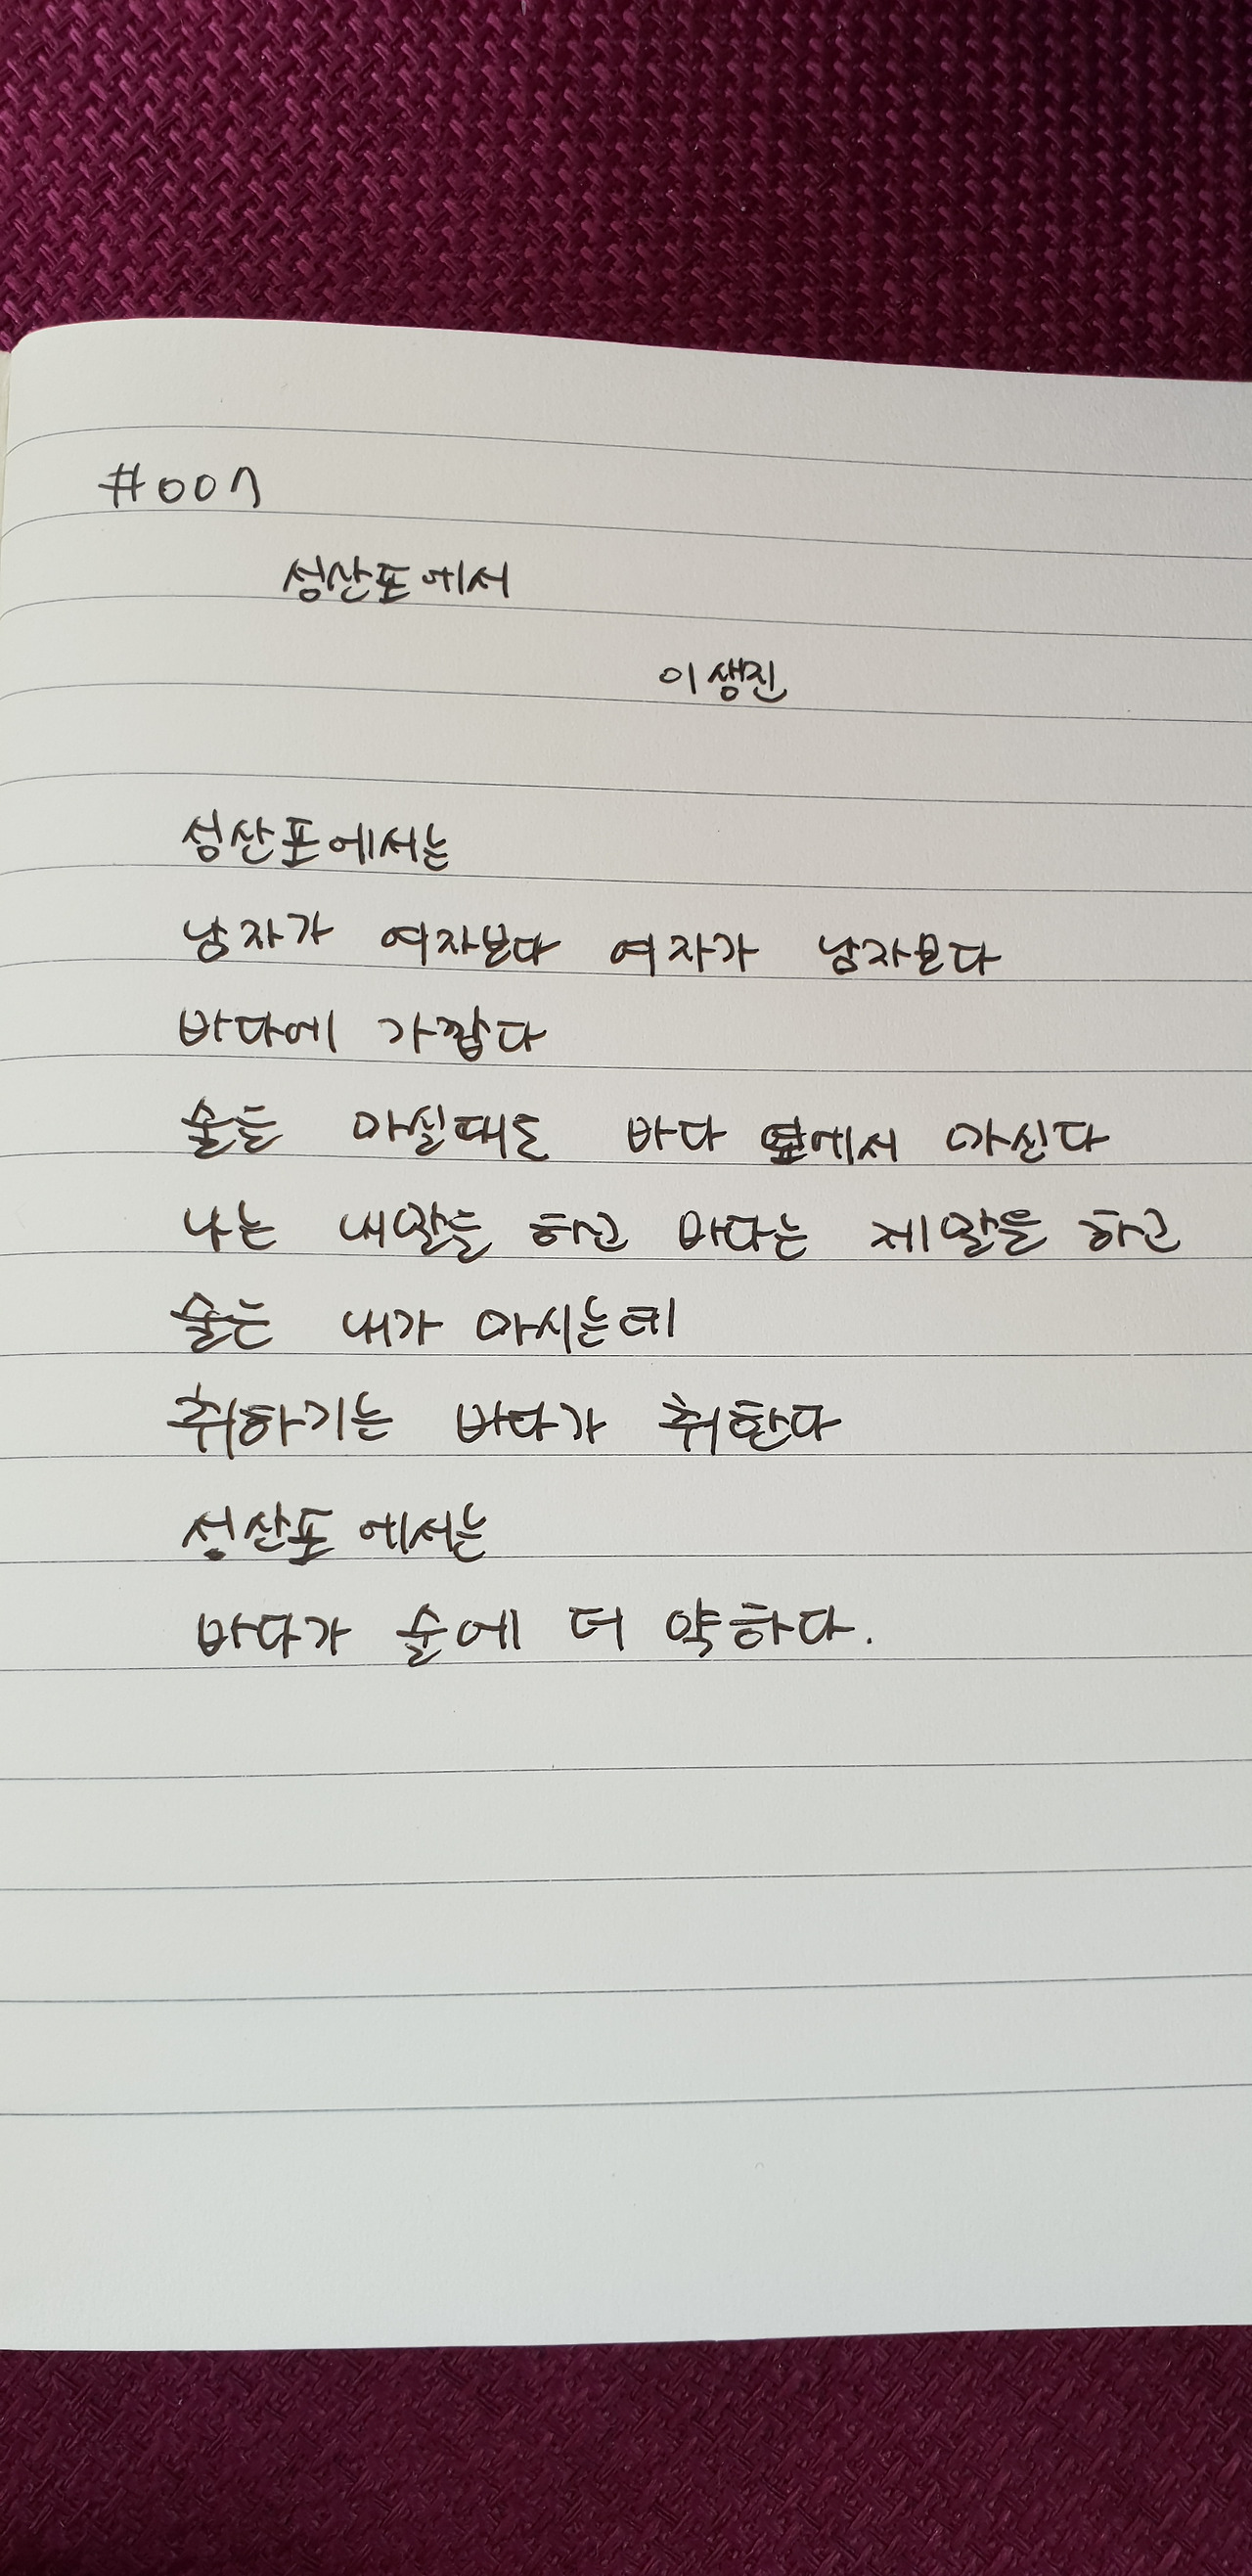 #007
성산포에서
이생진
성산포에서는
남자가 여자보다 여자가 남자보다
바다에 가깝다
술을 마실때도 바다 옆에서 마신다
나는 내말을 하고 바다는 제말을 하고
술은 내가 마시는데
취하기는 바다가 취한다
성산포에서는
바다가 술에 더 약하다.